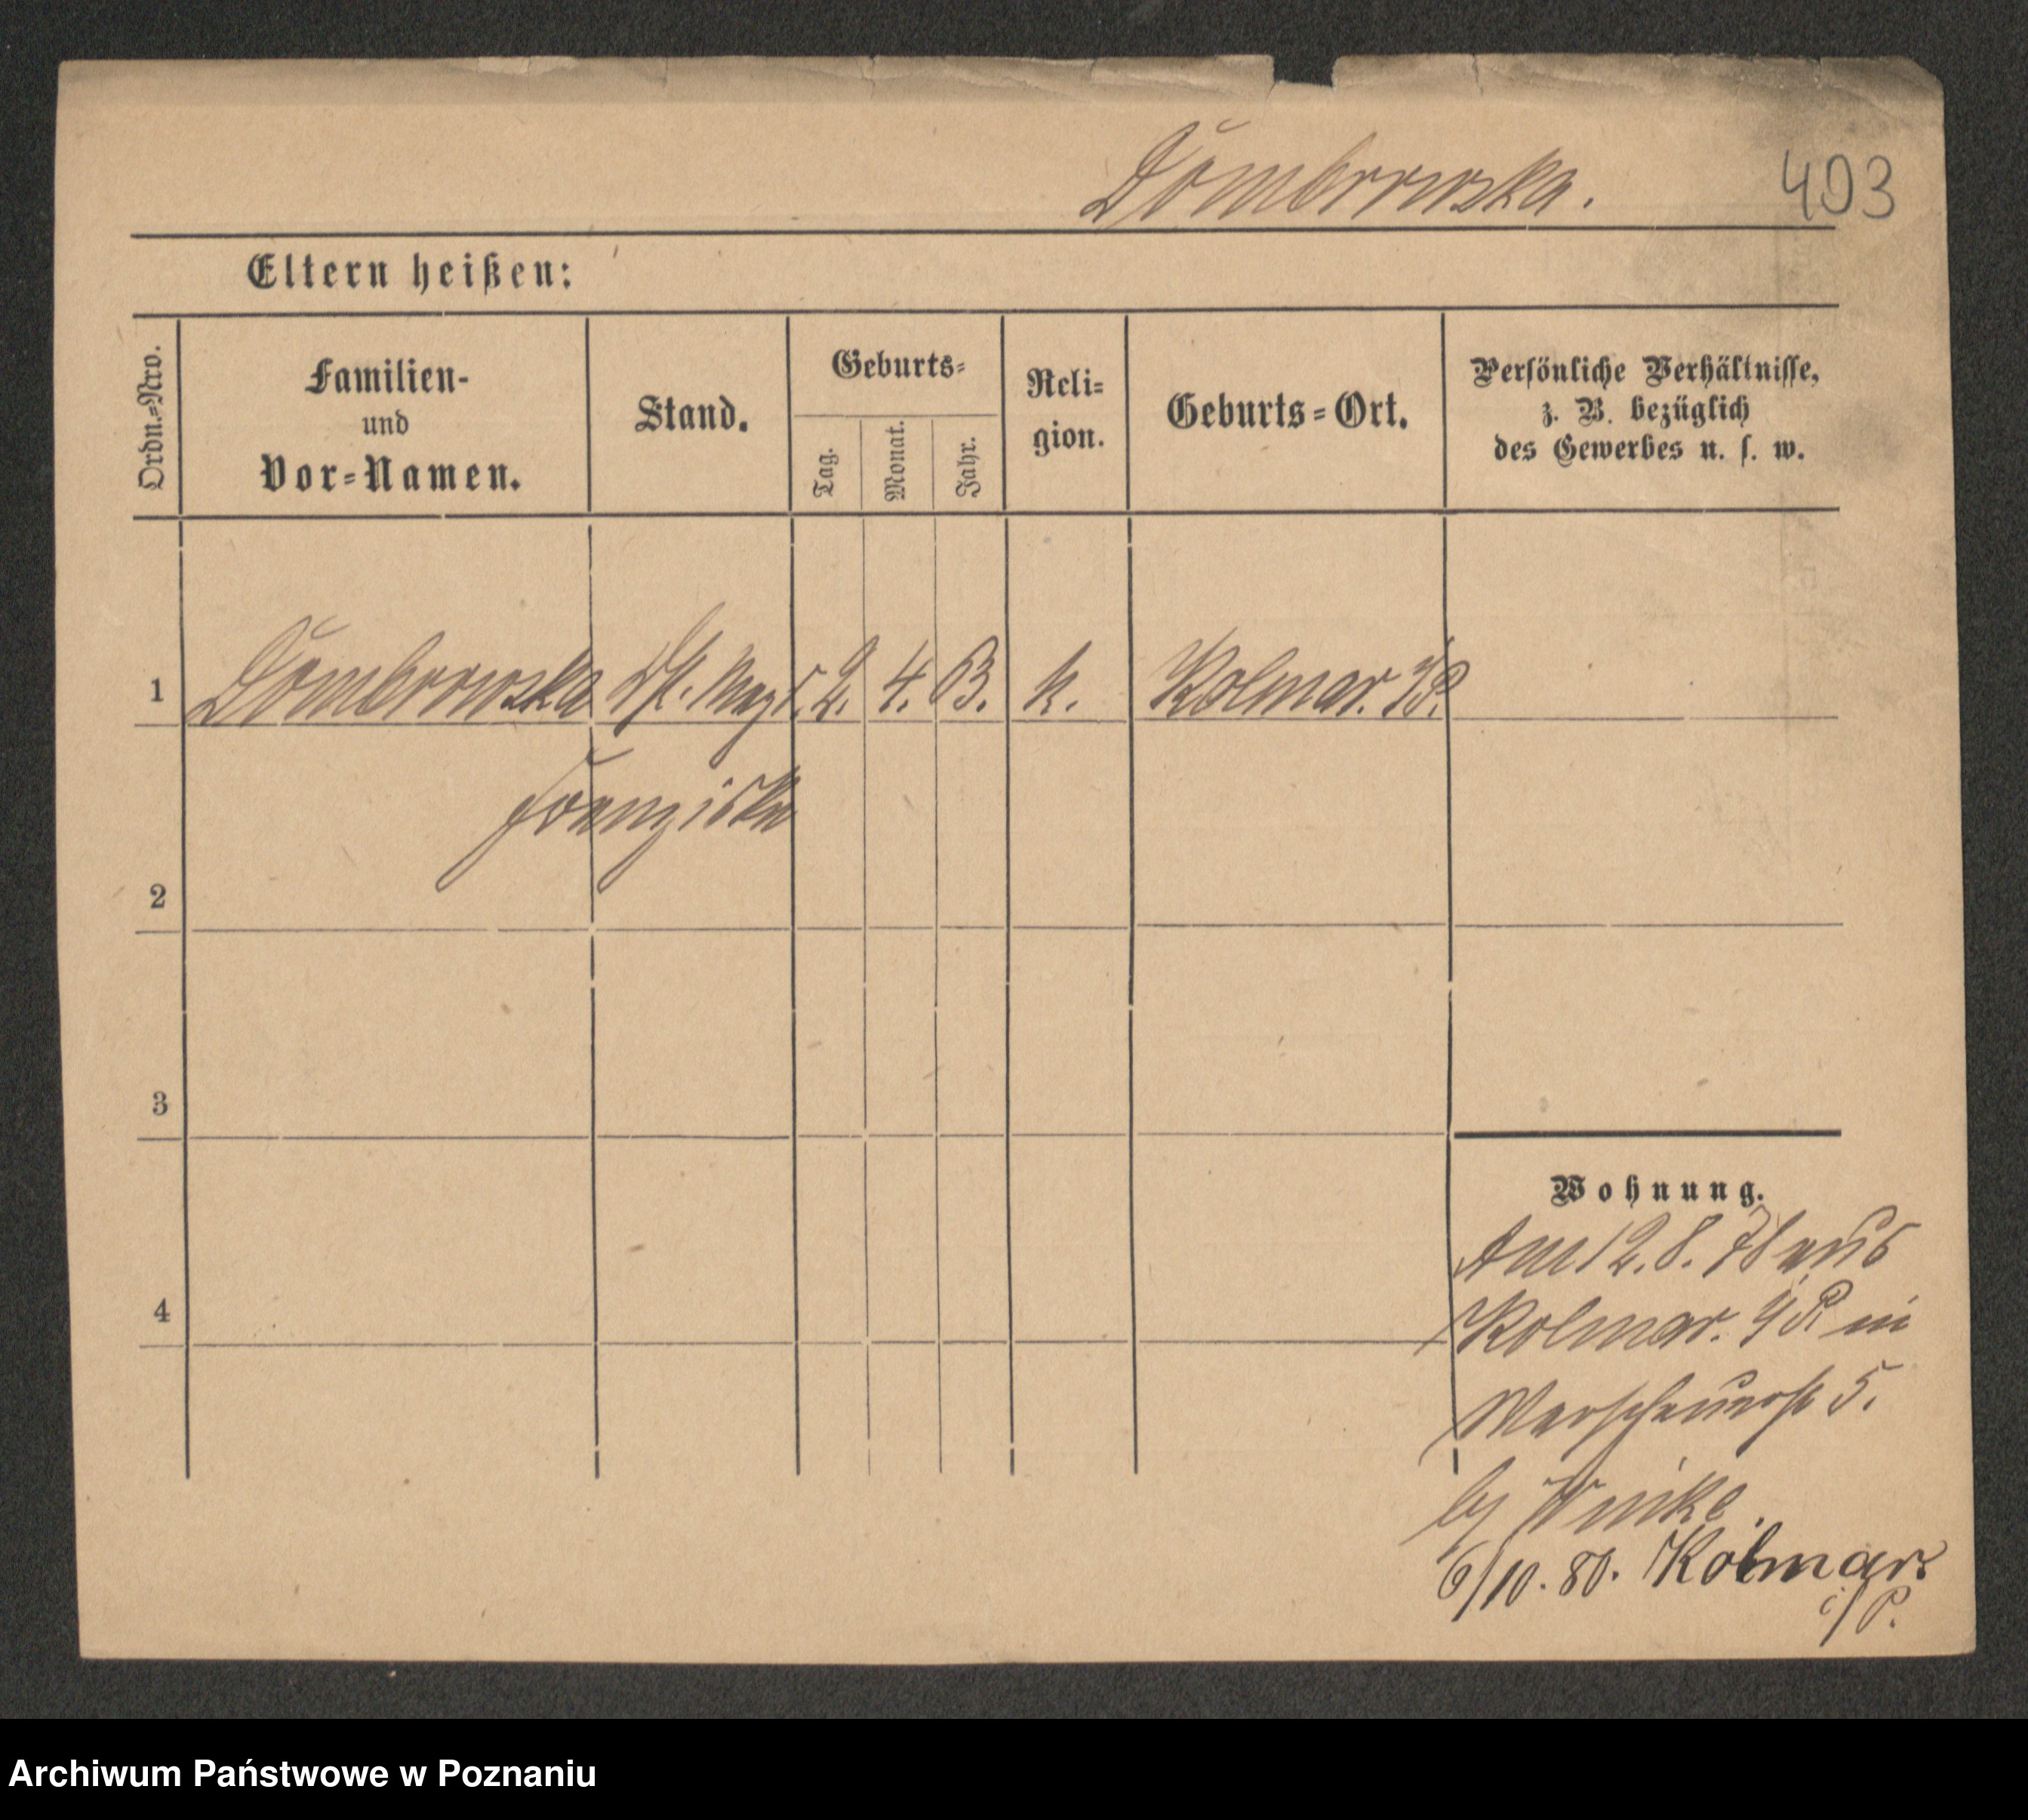 Dombrowska.
403
Eltern heißen:
Ordn.=Nro.
Familien-
und
Vor=Namen.
Stand.
Geburts=
Tag.
Monat.
Jahr.
Reli=
gion.
Geburts=Ort.
Persönliche Verhältnisse,
z. B. bezüglich
des Gewerbes u. s. w.
1 Dombrowska 2. 4. 63. k. Kolmar.
Franziska
2
3
4
Wohnung.
Am 12. 8. 78 aus
Kolmar. i/P in
5.
by
6/10. 80. Kolmar
i/P.
Archiwum Państwowe w Poznaniu